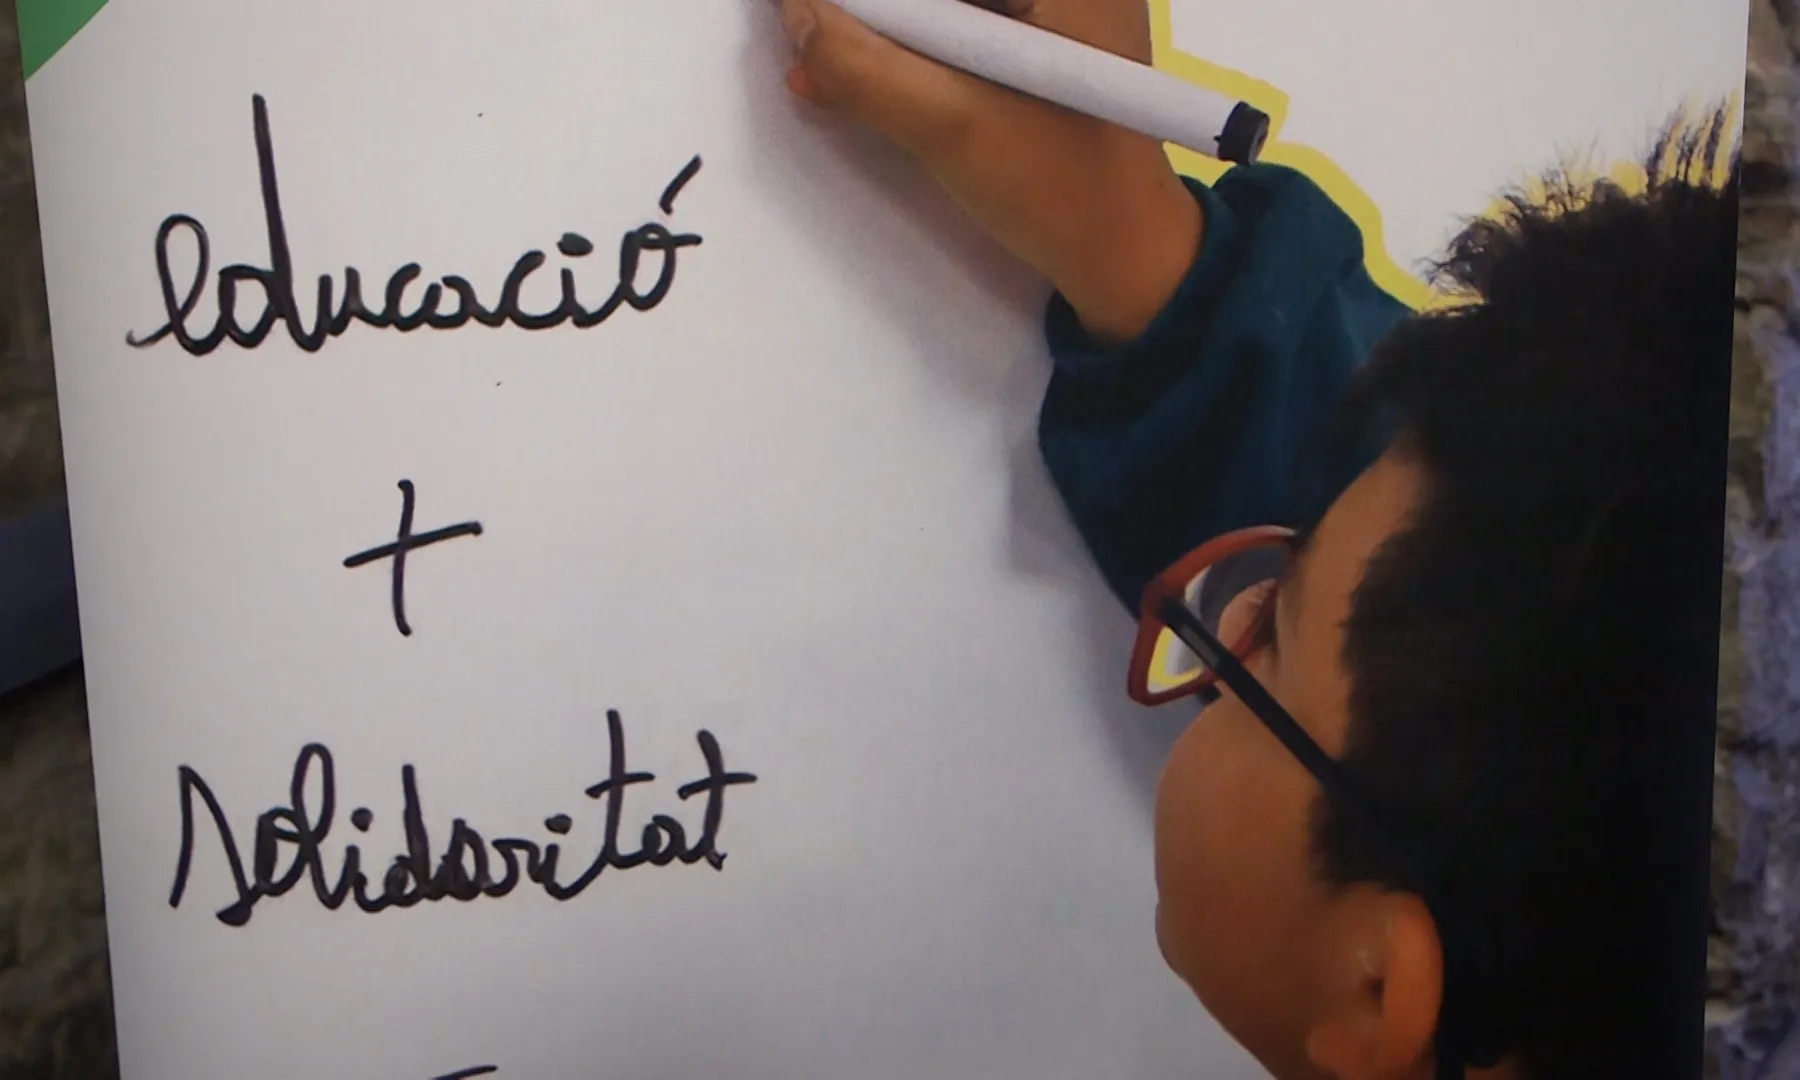 educació
+
solidaritat